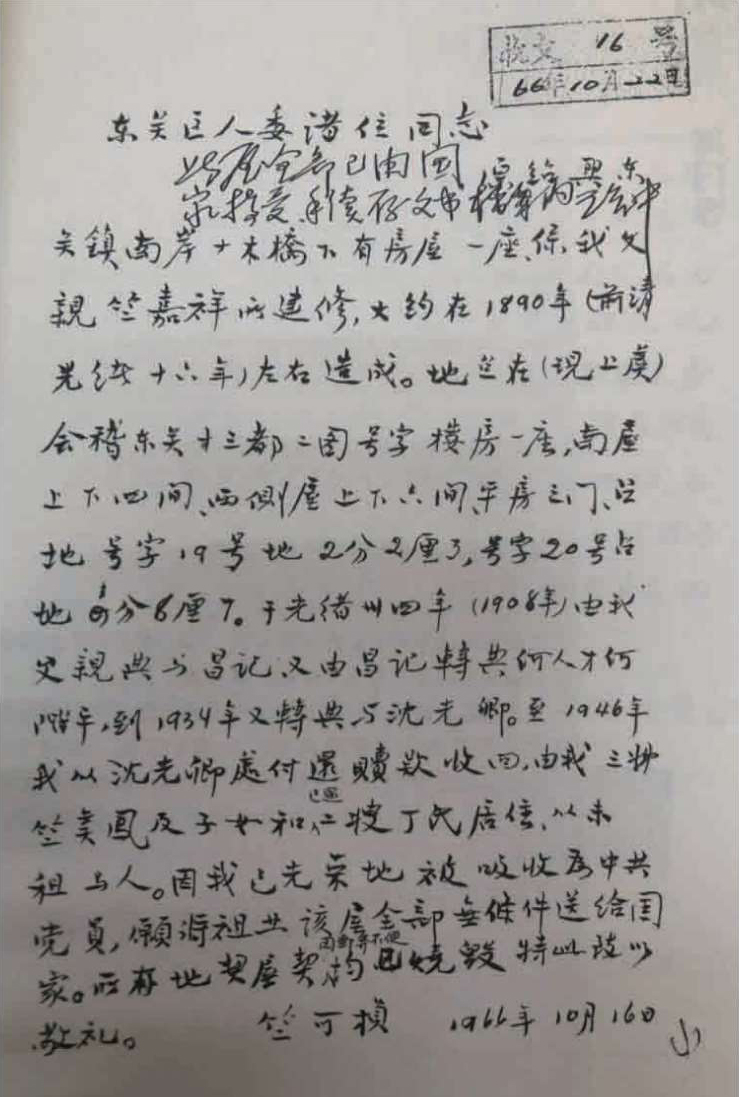 收文 16 号
66年10月22日
东关区人委诸位同志
此屋全部已由国
家接受手续存文书档案内
关鎮南岸十木橋下有房屋一座,係我父
親竺嘉祥所建修,大约在1890年(前清
光绪十六年)左右造成。地点在(现上虞)
会稽东关十三都二图号字楼房一座,南屋
上下四间、西侧屋上下六间、平房三门、占
地号字19号地2分2厘3,号字20号占
地分8厘7。于光绪卅四年(1908年)由我
父親典与昌记,又由昌记轉典何人才何
階平,到1934年又轉典与沈光卿。至1946年
我从沈光卿處付還贖款收回,由我三姊
竺美鳳及子女和二嫂丁氏居住、从未
已過
租与人。因我已光荣地被吸收為中共
党員,願将祖业该屋全部無條件送给国
家。所存地契屋契均已燒毀 特此致以
敬礼。 竺可楨 1966年10月16日